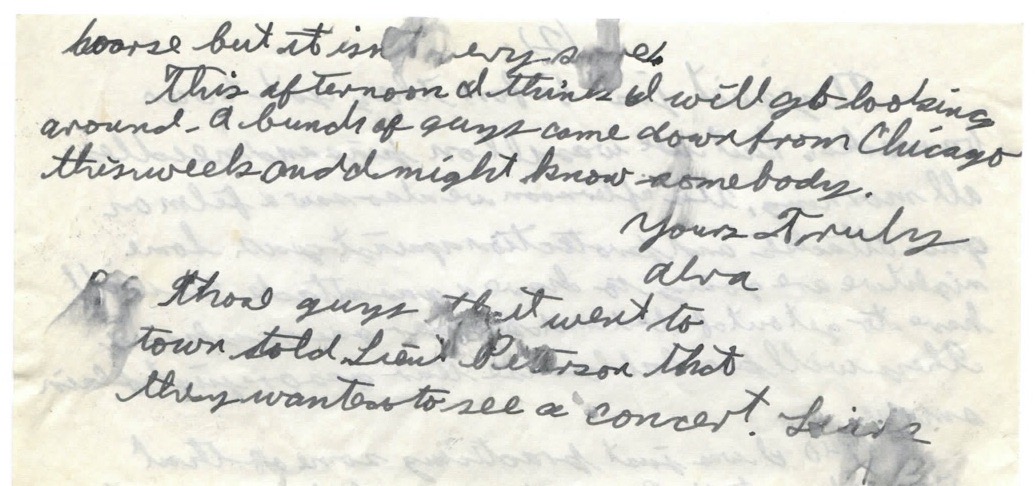 hoarse but it isn't very
This afternoon I think I will go looking
around. A bunch of guys came down from Chicago
this week and I might know somebody.
Yours Truly
Alva
PS those guys that went to
town told Lieut Peterson that
they wanted to see a concert. Liars